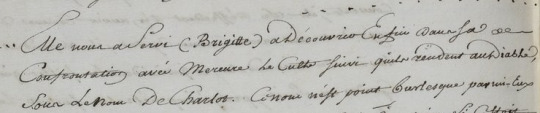 ... Elle nous a Servi (Brigitte) a Découvrir Enfin dans sa
Confrontation avec Mercure Le Culte suivi quils rendent au Diable,
Sous Le Nom De Charlot. Ce nom n'est point burlesque parmi Eux